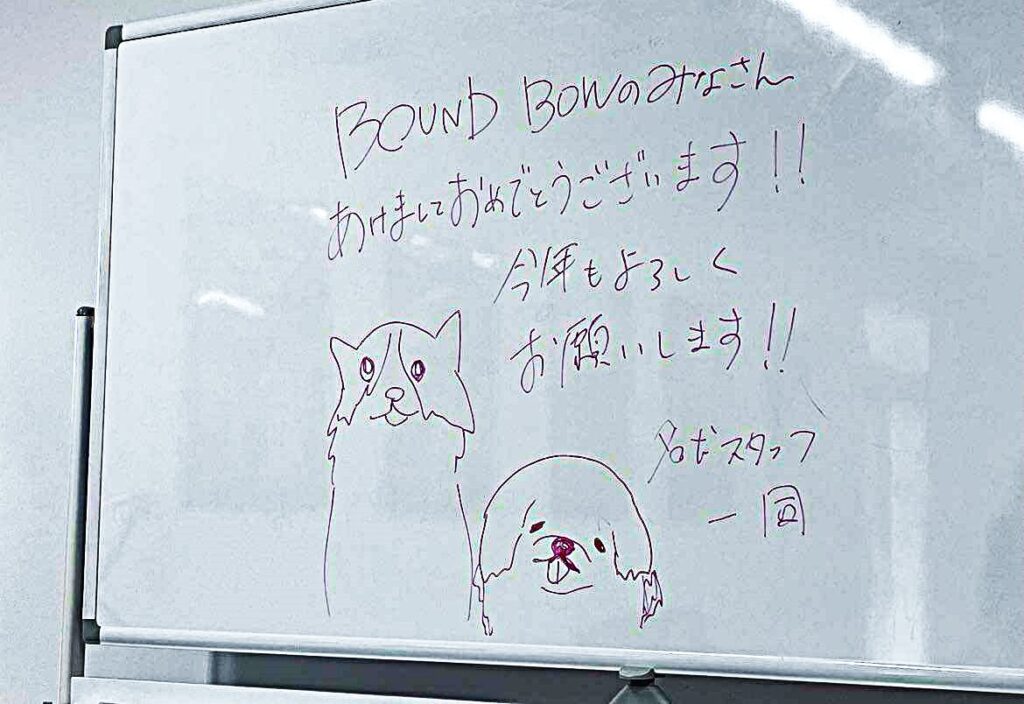 BOUND BOWのみなさん
あけましておめでとうございます!!
今年もよろしく
お願いします!!
スタッフ
一同